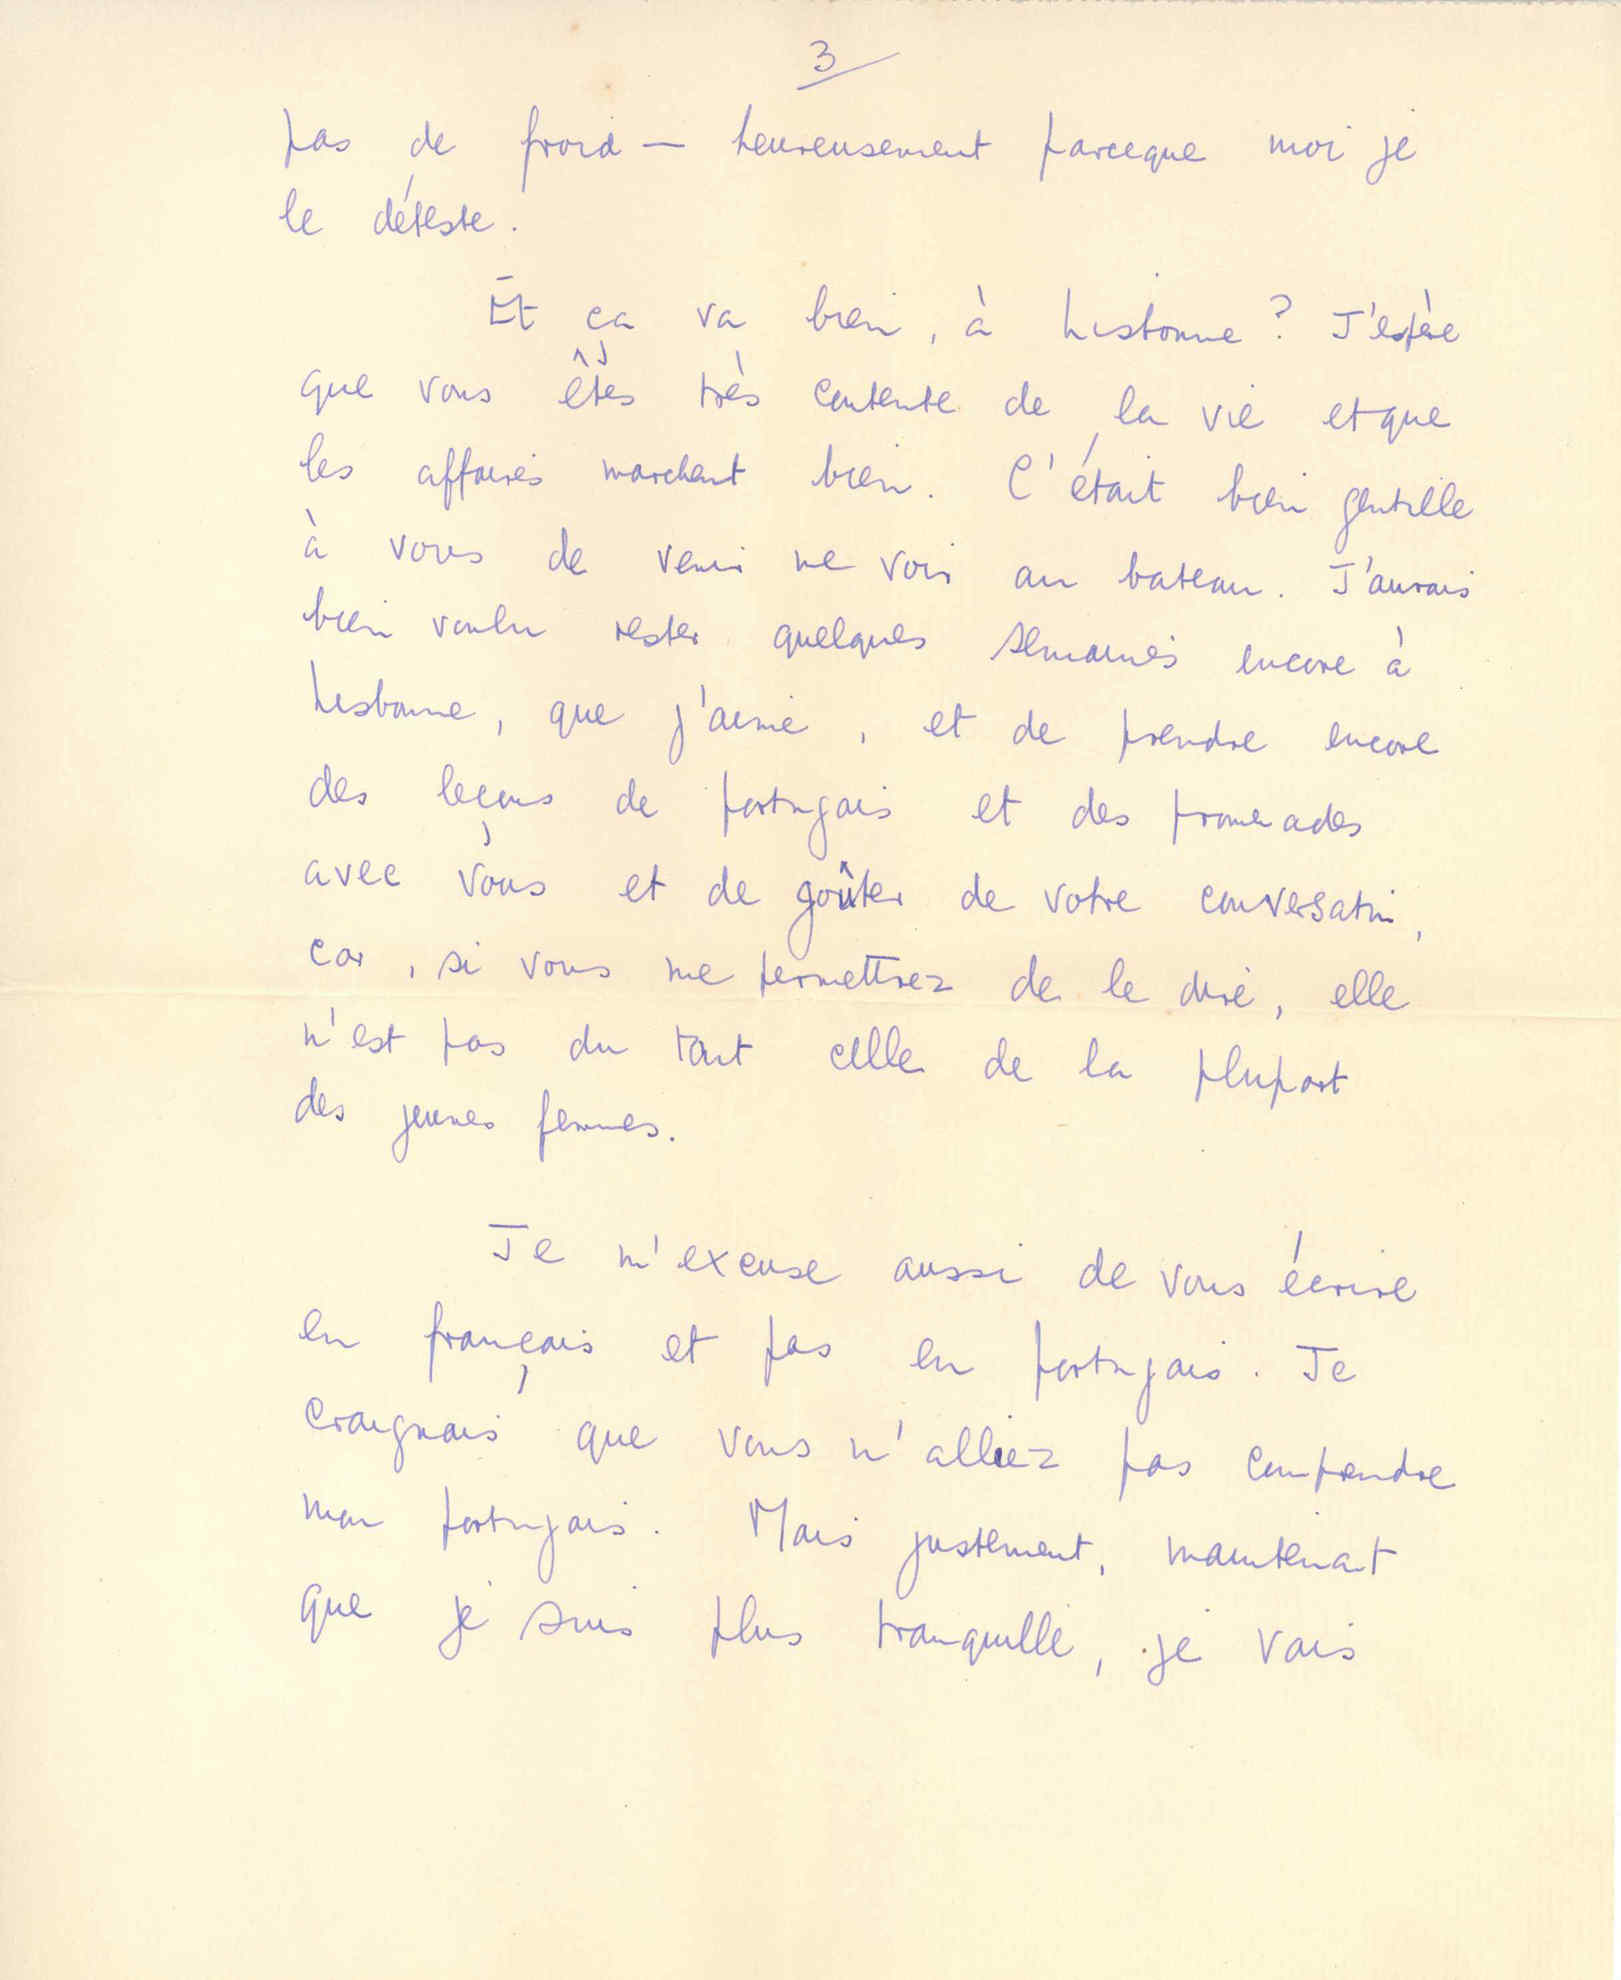 3
pas de froid — heureusement parceque moi je
le déteste.
Et ça va bien, à Lisbonne ? J'espère
que vous êtes très contente de la vie et que
les affaires marchent bien. C'était bien gentille
à vous de venir me voir au bateau. J'aurais
bien voulu rester quelques semaines encore à
Lisbonne, que j'aime, et de prendre encore
des leçons de portugais et des promenades
avec vous et de goûter de votre conversation,
car, si vous me permettrez de le dire, elle
n'est pas du tout celle de la plupart
des jeunes femmes.
Je m'excuse aussi de vous écrire
en français et pas en portugais. Je
craignais que vous n'alliez pas comprendre
mon portugais. Mais justement, maintenant
que je suis plus tranquille, je vais